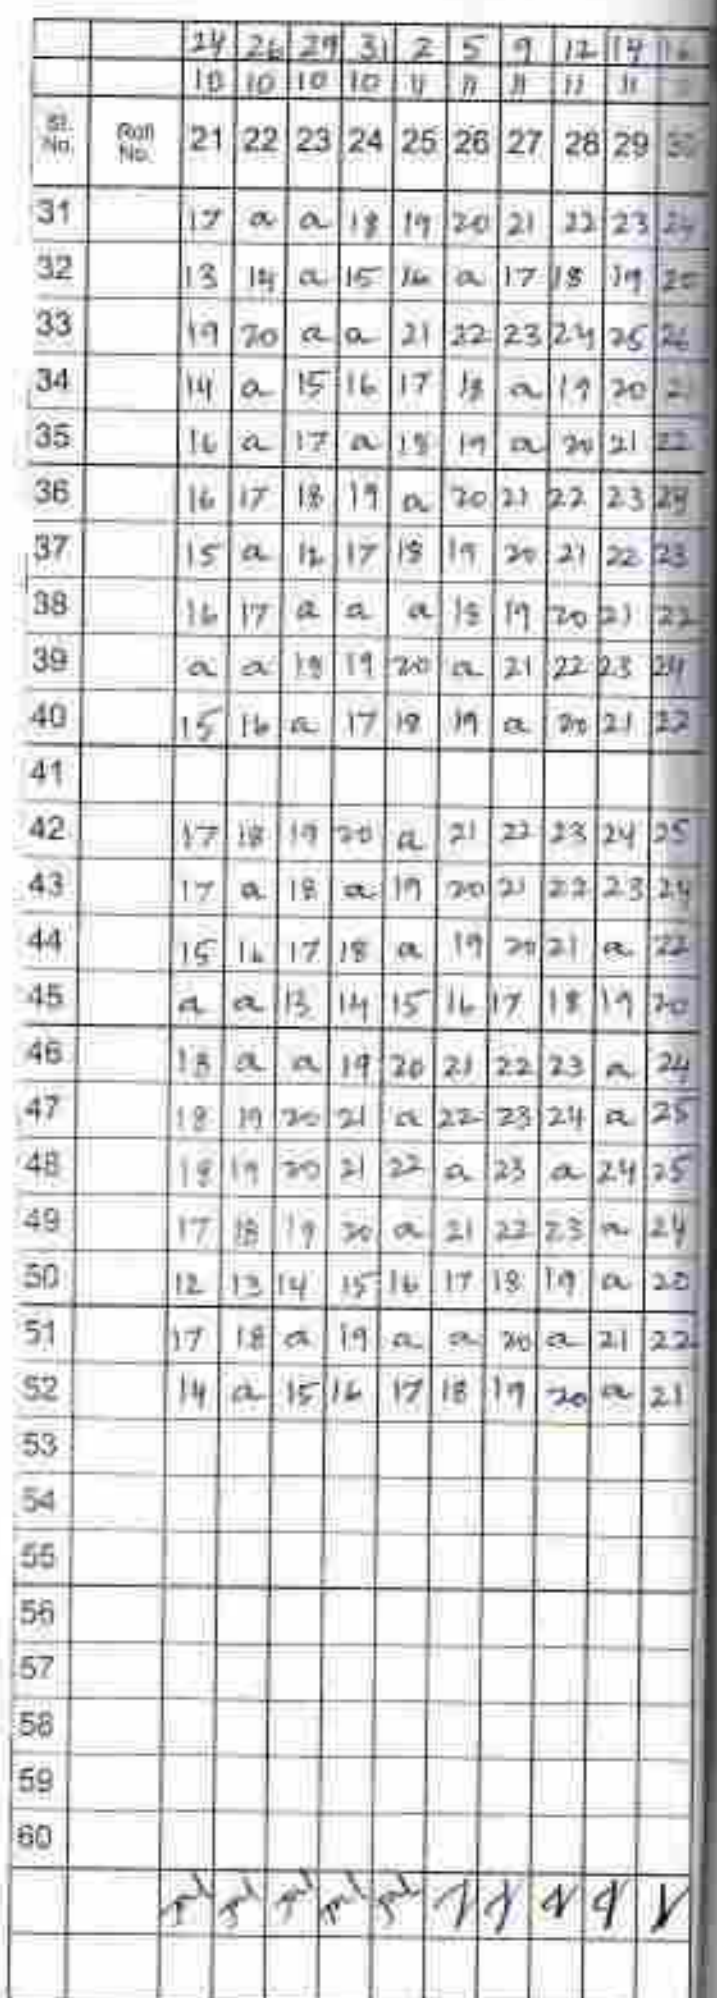 24 26 29 31 2 5 9 12 14 16
10 10 10 10 11 11 11 11 11
Sl. No. Roll No. 21 22 23 24 25 26 27 28 29 30
31 17 a a 18 19 20 21 22 23 24
32 13 14 a 15 16 a 17 18 19 20
33 19 20 a a 21 22 23 24 25 26
34 14 a 15 16 17 18 a 19 20 21
35 16 a 17 a 18 19 a 20 21 22
36 16 17 18 19 a 20 21 22 23 24
37 15 a 16 17 18 19 20 21 22 23
38 16 17 a a a 18 19 20 21 22
39 a a 18 19 20 a 21 22 23 24
40 15 16 a 17 18 19 a 20 21 22
41
42 17 18 19 20 a 21 22 23 24 25
43 17 a 18 a 19 20 21 22 23 24
44 15 16 17 18 a 19 20 21 a 22
45 a a 13 14 15 16 17 18 19 20
46 18 a a 19 20 21 22 23 a 24
47 18 19 20 21 a 22 23 24 a 25
48 18 19 20 21 22 a 23 a 24 25
49 17 18 19 20 a 21 22 23 a 24
50 12 13 14 15 16 17 18 19 a 20
51 17 18 a 19 a a 20 a 21 22
52 14 a 15 16 17 18 19 20 a 21
53
54
55
56
57
58
59
60